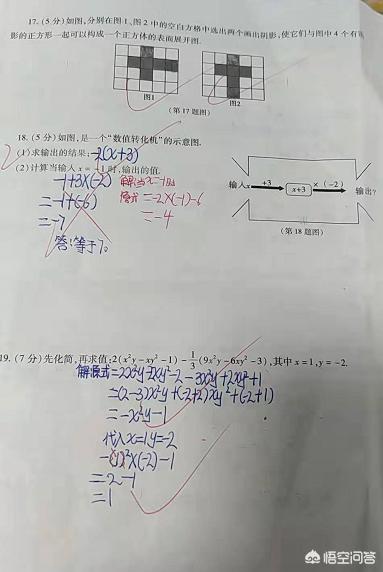 17.(5分)如图,分别在图1、图2中的空白方格中选出两个画出阴影,使它们与图中4个有
影的正方形一起可以构成一个正方体的表面展开图.
图1
图2
(第17题图)
18.(5分)如图,是一个"数值转化机"的示意图.
(1)求输出的结果; 2(x+3)
(2)计算当输入x=-1时,输出的值.
-1+3×(-2)
=-1+(-6)
=-7
答:等于7。
2
解:当x=-1时
原式=-2×(-1)-6
=-4
输入x
+3
x+3
×(-2)
输出?
(第18题图)
19.(7分)先化简,再求值:2(x²y-xy²-1)-1/3(9x²y-6xy²-3),其中x=1,y=-2.
解:原式=2x²y-2xy²-2-3x²y+2xy²+1
=(2-3)x²y+(-2+2)xy²+(-2+1)
=-x²y-1
代入x=1,y=-2
-(1)²×(-2)-1
=2-1
=1
悟空问答